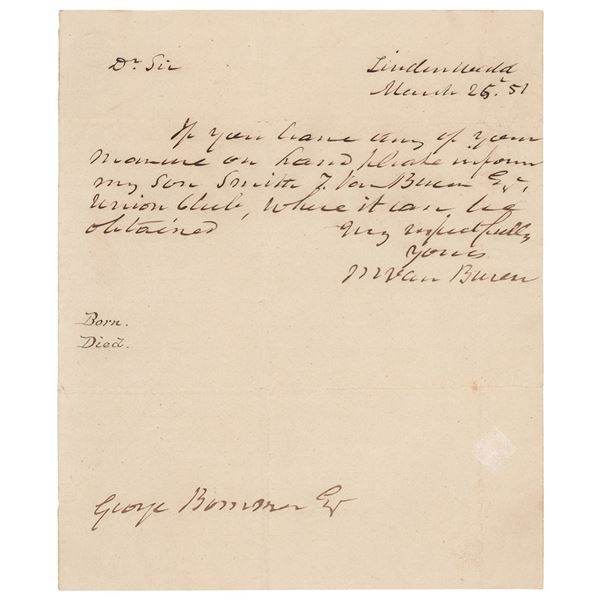 Dr. Sir
Lindenwald
March 25. 51
If you have any of your
manure on hand please inform
my son Smith T. Van Buren Esqr,
Union Club, where it can be
obtained
Very respectfully
Yours
M Van Buren
Born.
Died.
George Bommer Esqr